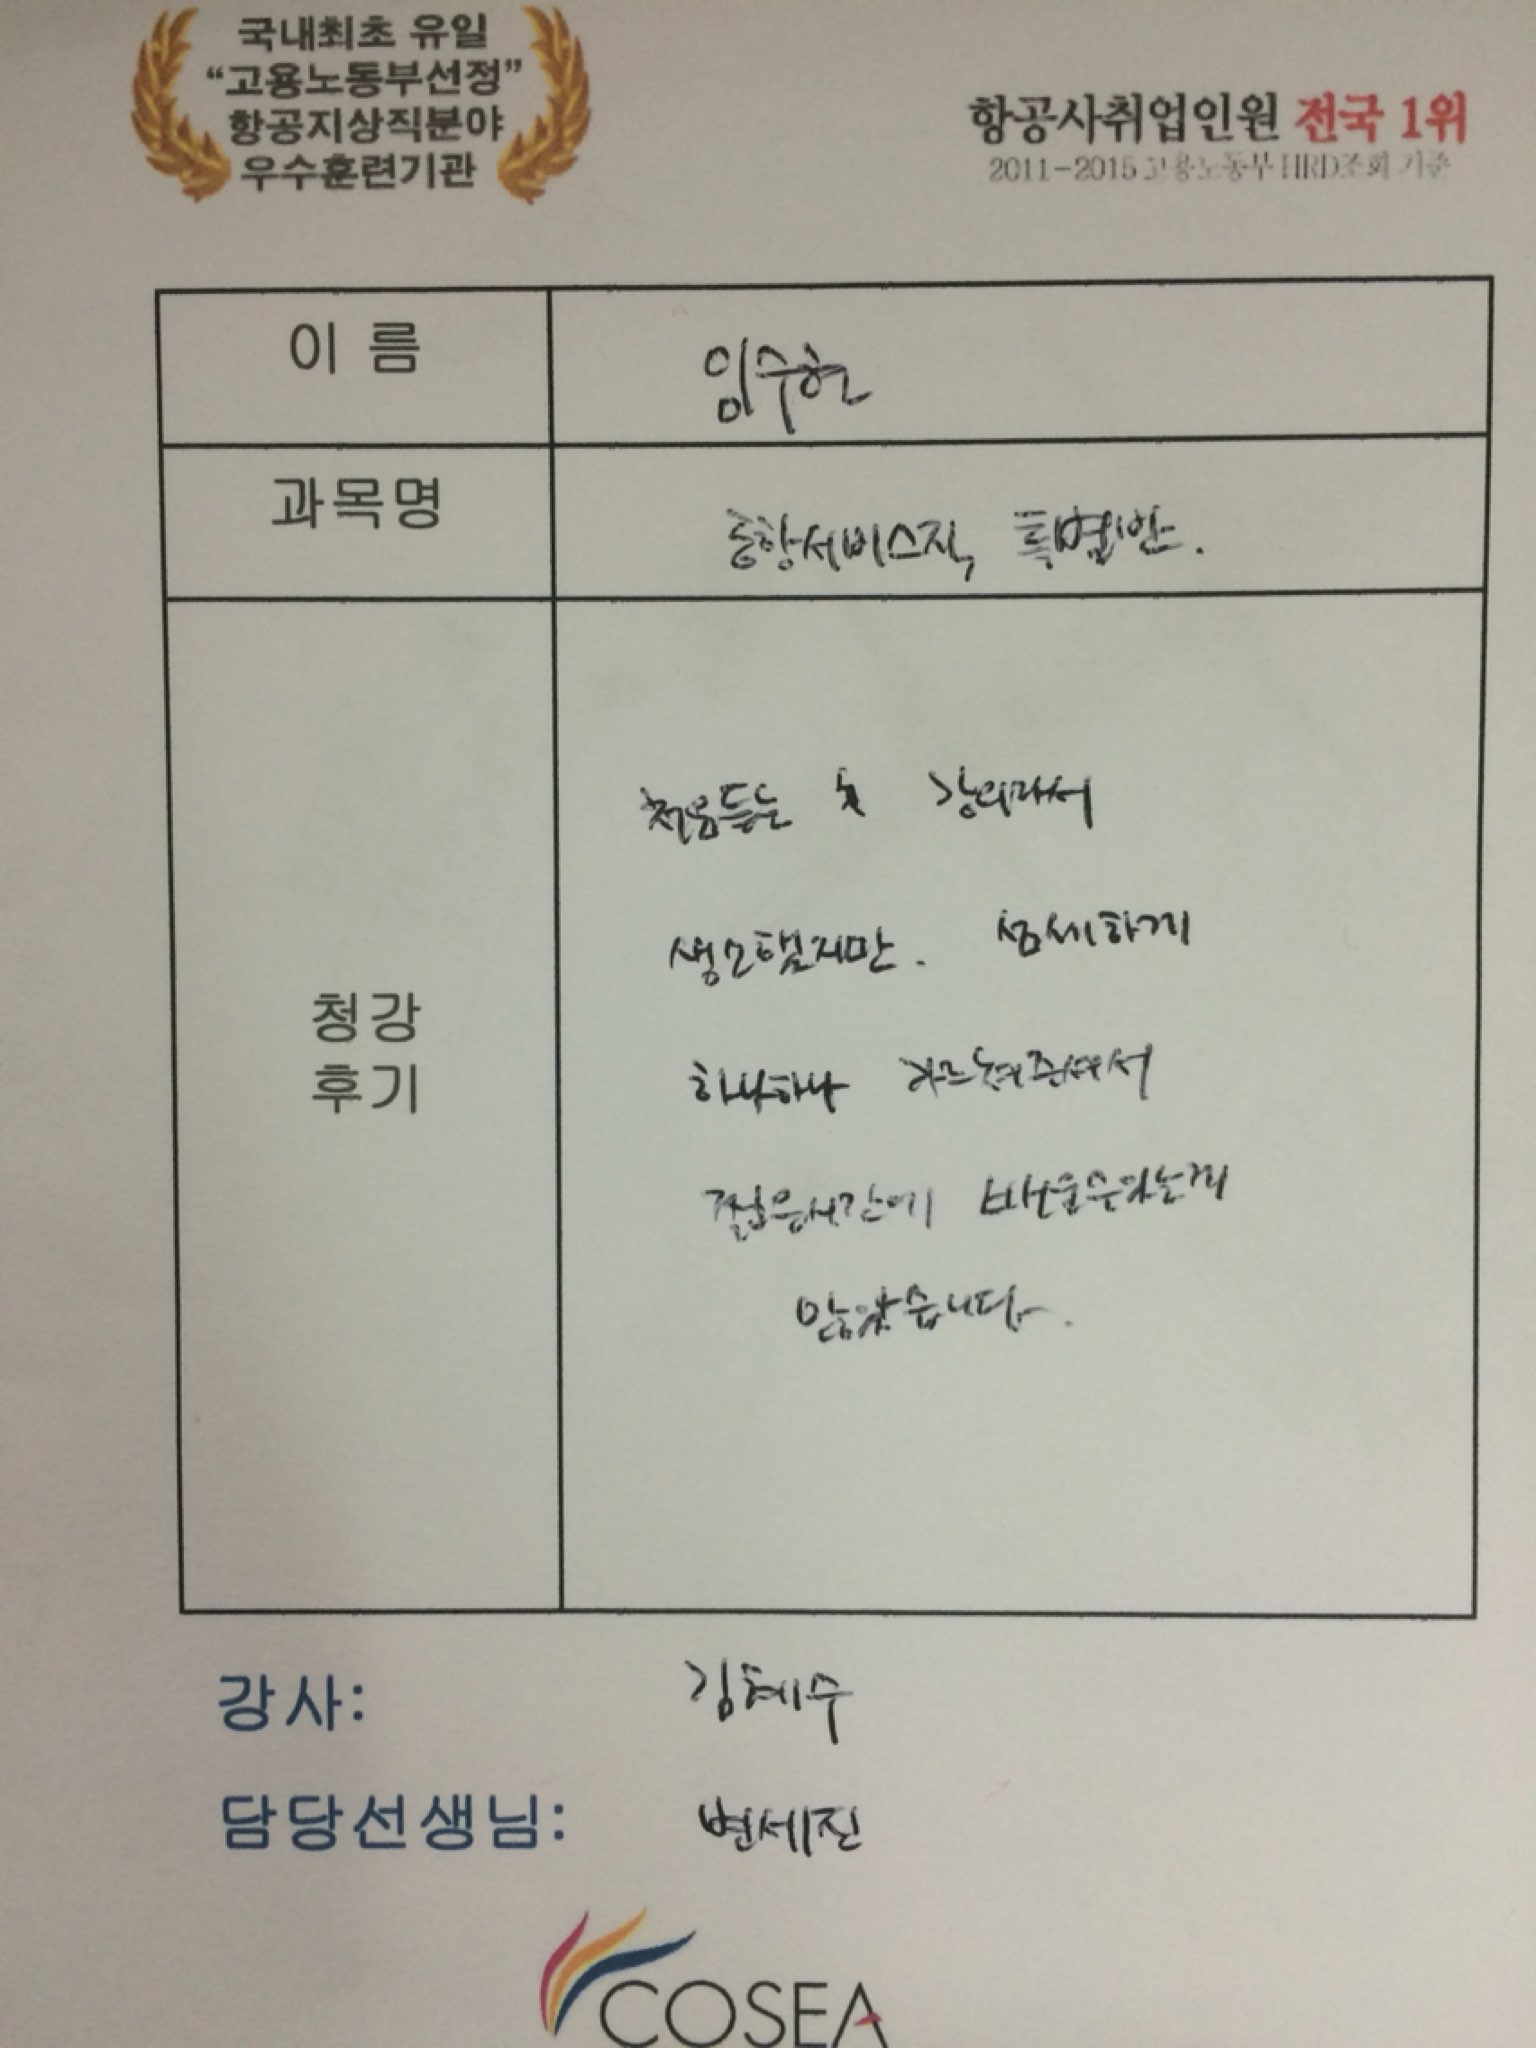 국내최초 유일
“고용노동부선정”
항공지상직분야
우수훈련기관
항공사취업인원 전국 1위
2011-2015 고용노동부 HRD조회 기준
이 름
임수현
과목명
특별반.
청강
후기
처음듣는 강의라서
생소했지만. 섬세하게
하나하나 가르쳐주셔서
짧은시간에 배운수확는게
많았습니다.
강사:
김혜수
담당선생님:
변세진
COSEA